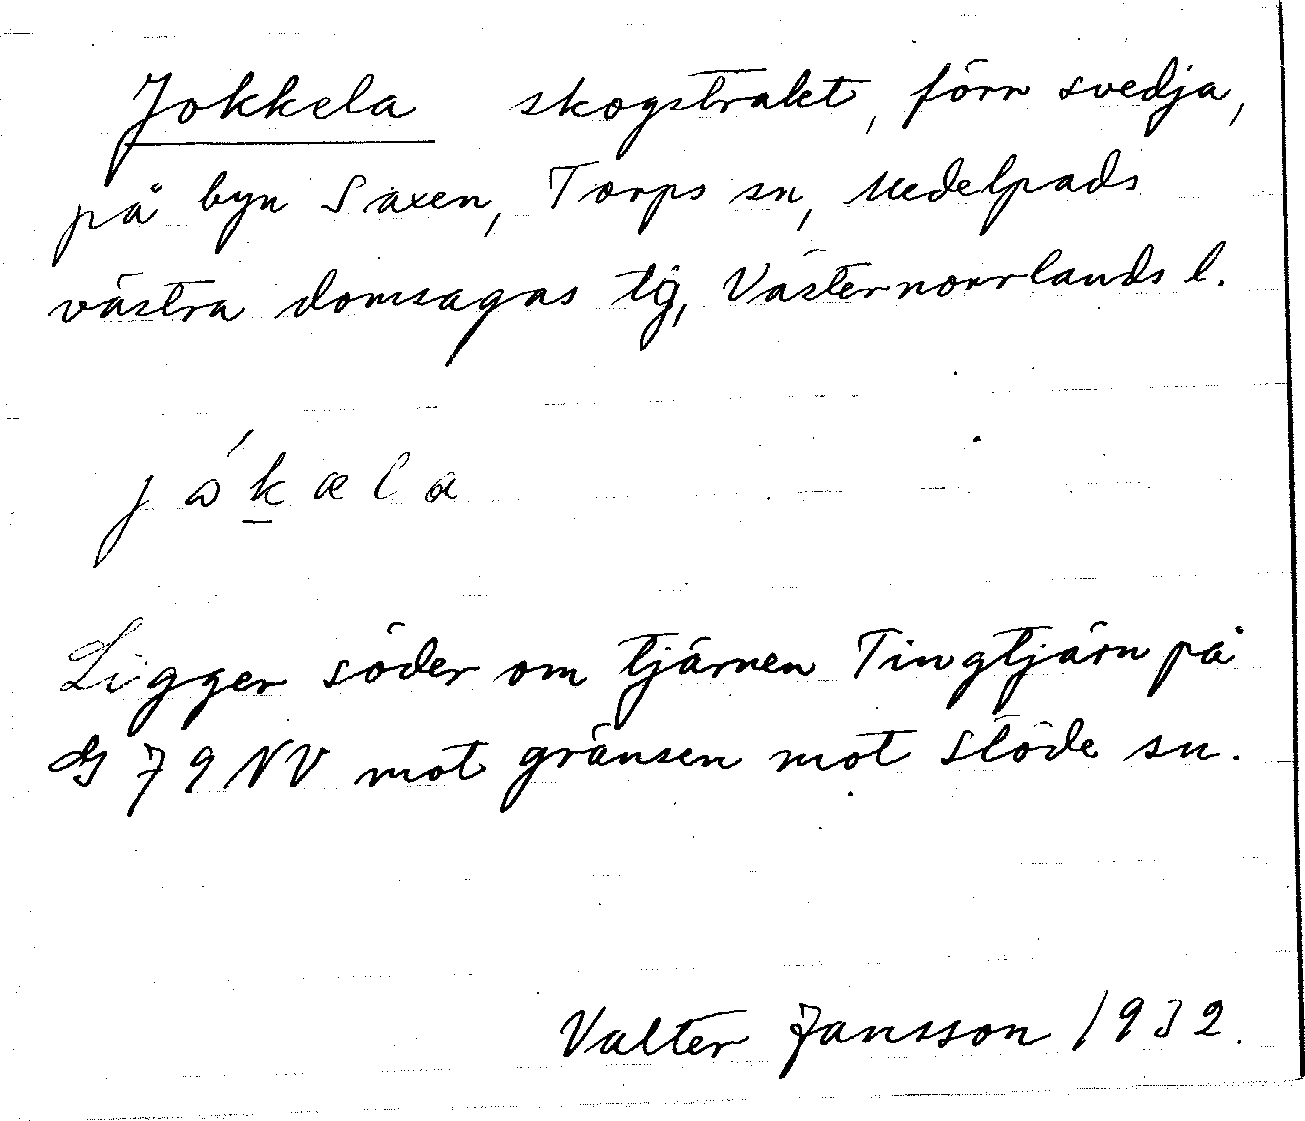 Jokkela skogstrakt, förr svedja,
på byn Saxen, Torps sn, Medelpads
västra domsagas tg, Västernorrlands l.
jåkæla
Ligger söder om tjärnen Tingtjärn på
G 79 NV mot gränsen mot Stöde sn.
Valter Jansson 1932.